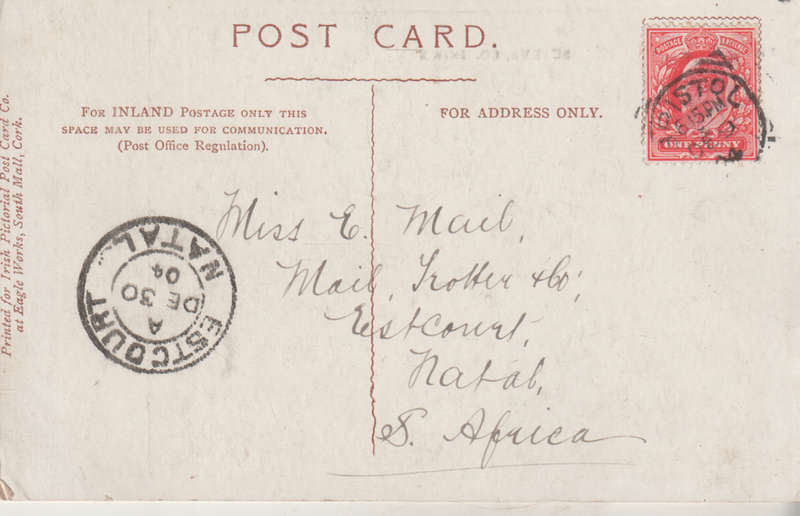 POST CARD.
FOR INLAND POSTAGE ONLY THIS
SPACE MAY BE USED FOR COMMUNICATION.
(Post Office Regulation).
FOR ADDRESS ONLY.
Printed for Irish Pictorial Post Card Co.
at Eagle Works, South Mall, Cork.
POSTAGE REVENUE
ONE PENNY
BRISTOL
15 PM
04
Miss E. Mail,
Mail, Trotter & Co;
Estcourt,
Natal,
S. Africa
ESTCOURT NATAL
A
DE 30
04